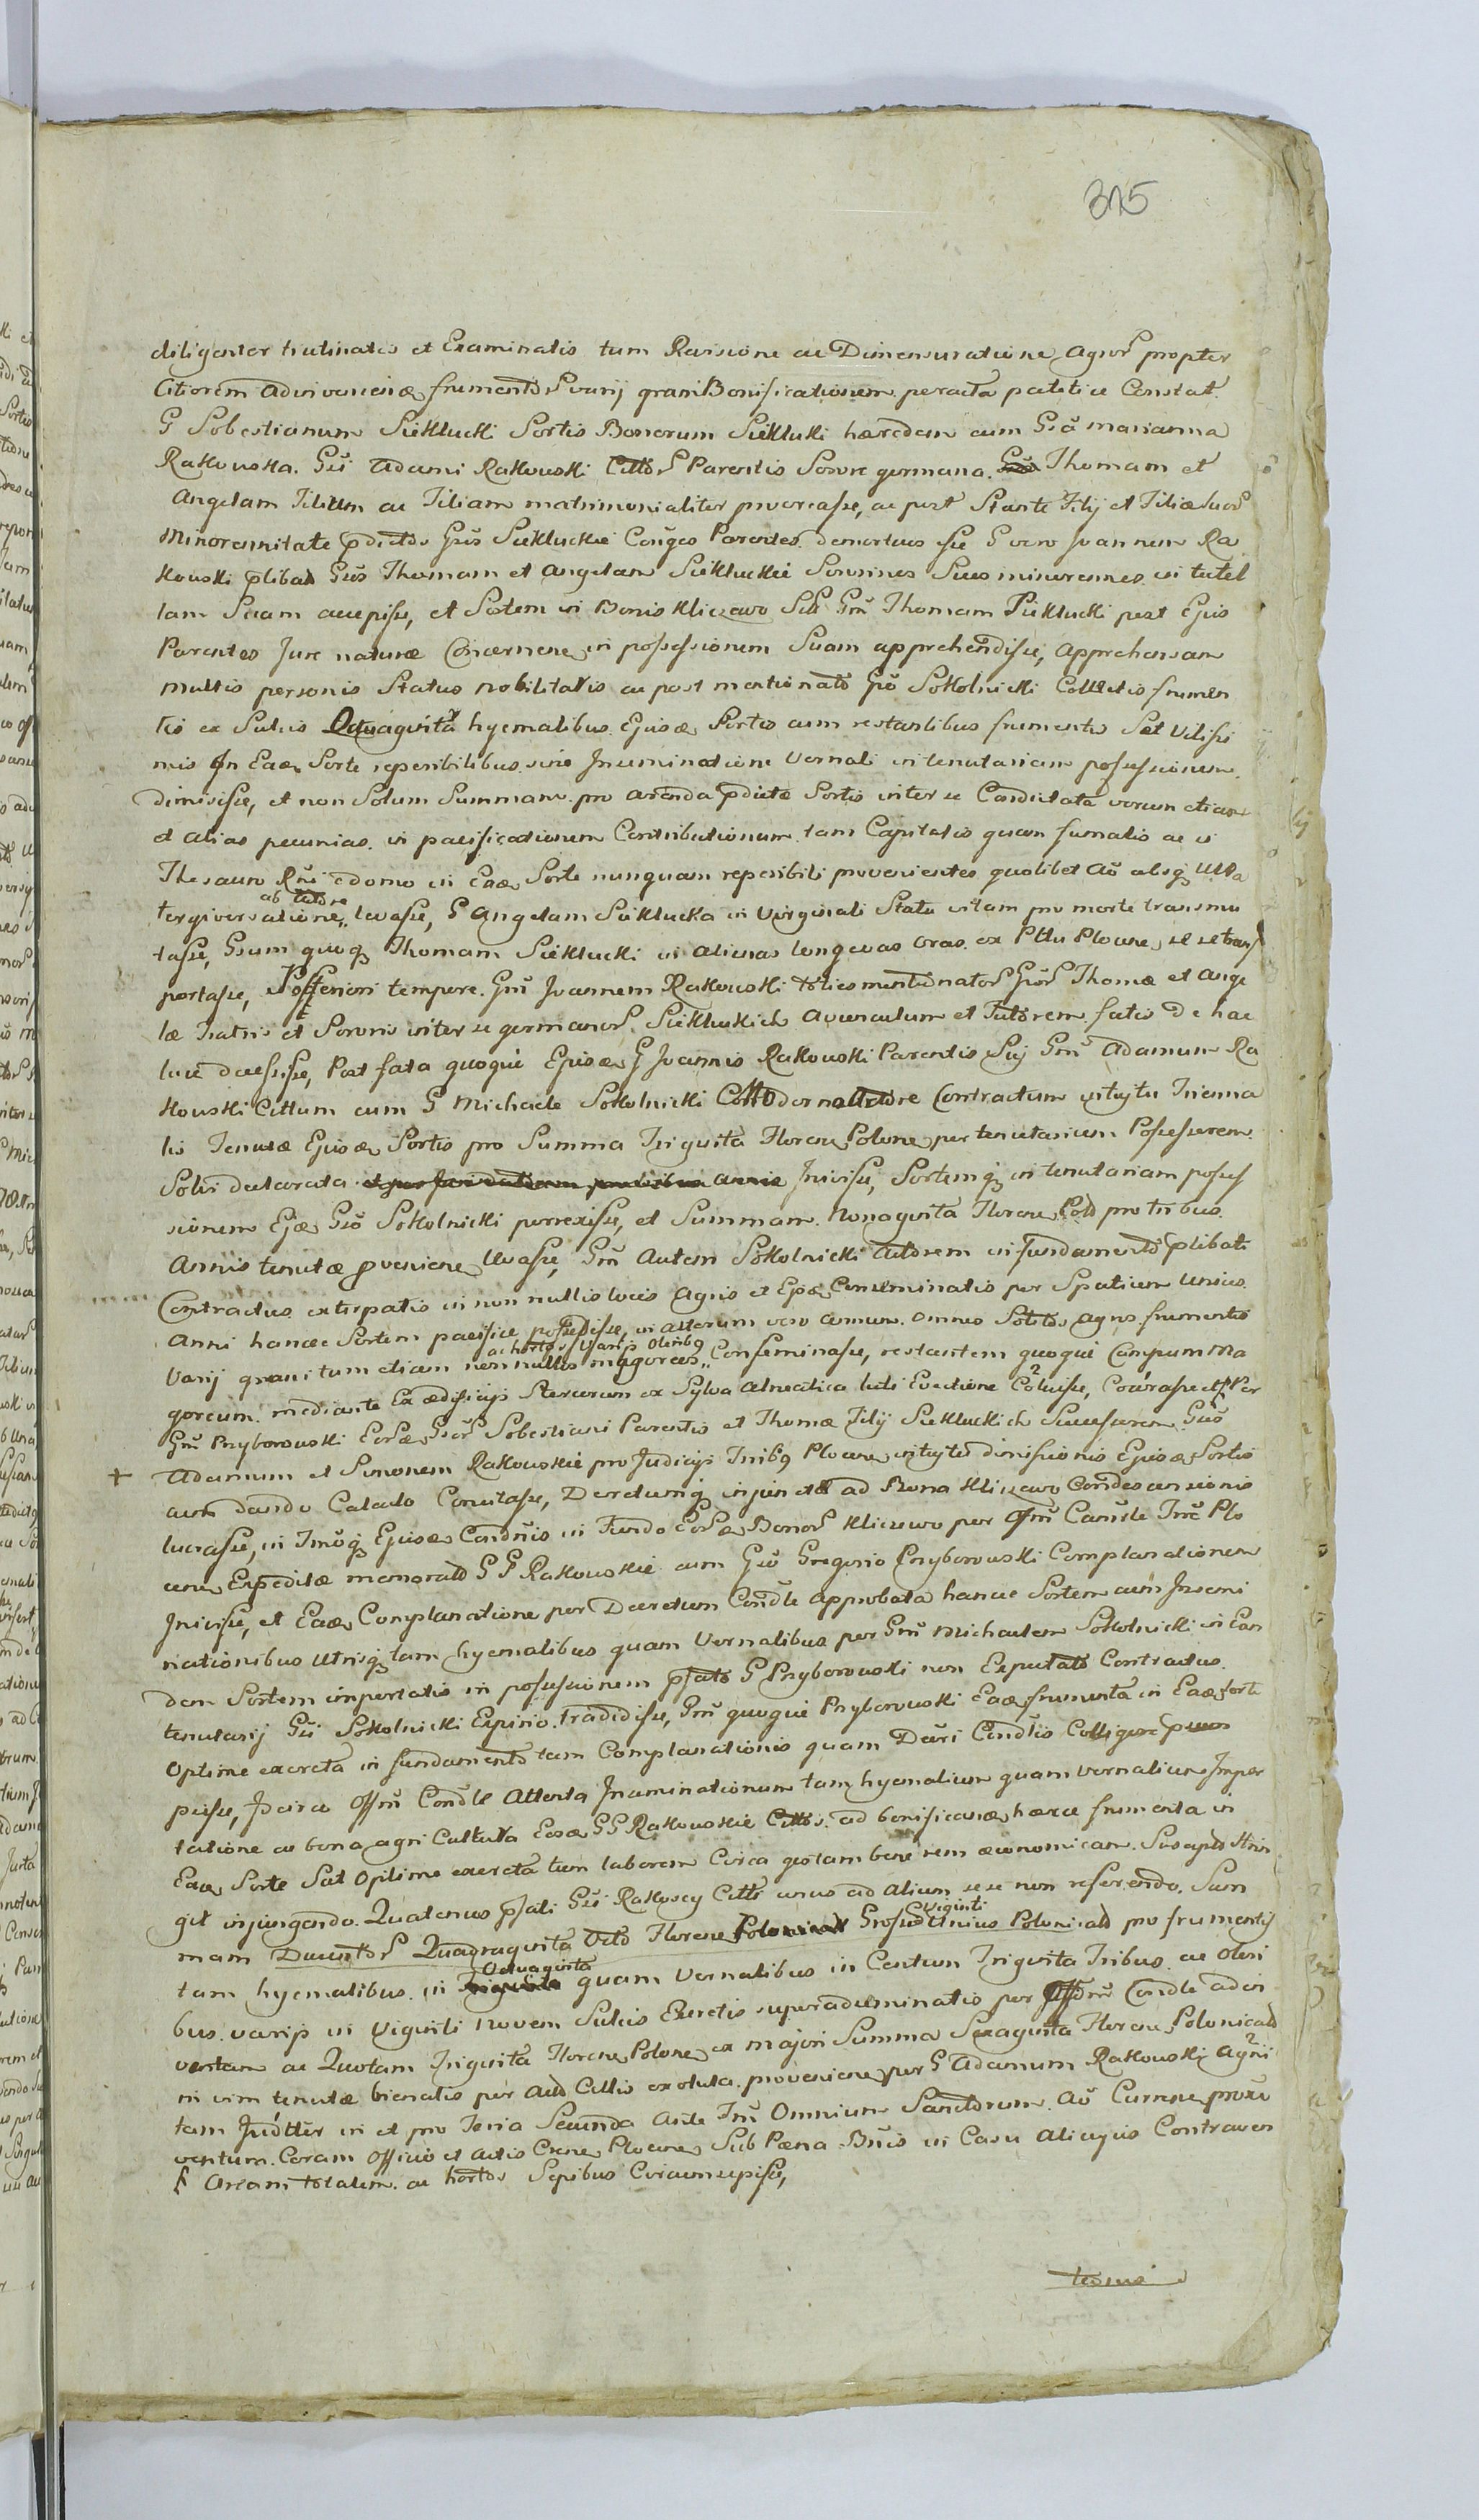 315
diligenter trutinatis et Examinatis tum Revisione ac Dimensuratione Agror propter
Citiorem adinvenienda frumentor varij grani Bonificationem peracta patet ac Constat
G Sobestianum Sieklucki Sortis Bonorum Siekluki haeredem cum Gsa marianna
Rakowska Gsi Adami Rakowski Cittor Parentis Sorore germana Thomam et
Angelam Filium ac Filiam matrimonialiter procreasse, ac post Stante Filij et Filiae suor
Minorennitate pdictos Gsos Siekluckie Conges Parentes demortuos esse G vero Joannem Ra
kowski plibat Gsos Thomam et Angelam Siekluckie Sororinos Suos minorennes in tutel
lam Suam accepisse, et Sortem in Bonis Kliczewo Sitt Gsm Thomam Sieklucki post Ejus
Parentes Jure naturae Concernene in possessionem Suam apprehendisse, apprehensam
multis personis Status nobilitaris ac post mentionato Gso Sokolnicki Collectis frumen
tis ex Sulcis Octuaginta hyemalibus Ejusd Sortis cum restantibus frumentis Sat vilissi
mis in Ead Sorte reperibilibus sine Inseminatione vernali in tenutariam possessionem
dimisisse, et non Solum Summam pro arenda pdictae Sortis inter se Condictatam verum etiam
et alias pecunias in pacificationem Contributionum tam Capitalis quam fumalis ac
Thesauro Rni e domo in Ead Sorte nunquam reperibili provenientes quolibet Ao absq ulla
tergiversatione ab Actore levasse, G Angelam Sieklucka in Virginali Statu vitam pro morte transmu
tasse, Gsum quoq Thomam Sieklucki in alienas longevas oras ex Pttu Plocen se se trans
portasse, Posteriori tempore Gsm Joannem Rakowski toties mentionator Gsor Thomae et Ange
lae Fratris et Sororis inter se germanor Siekluckich Avunculum et Tutorem fatis De hac
luce decessisse, Post fata quoque Ejusd G Joannis Rakowski Parentis Sui Gsm Adamum Ra
kowski Cittum cum G Michaele Sokolnicki moderno Actore Contractum intuitu Trienna
lis Tenutae Ejusd Sortis pro Summa Triginta Floren Polone per tenutarium Possessorem
Solvi declarata Inivisse, Sortemq in tenutariam posses
sionem Ejd Gso Sokolnicki porrexisse, et Summam Nonaginta Floren Pold pro tribus
Annis tenutae provenien levasse, Gsm Autem Sokolnicki Actorem in fundamento plibati
Contractus extirpatis in non nullis locis Agris et Conseminatis per Spatium unius
Anni hancce Sortem pacifice possedisse, in alterum vero annum omnes Solitos agros frumentis
Varij grani tum etiam non nullos mugorces ac hortos Varijs Oleribq Conseminasse, restantem quoque Campum Ma
gorcum mediante Ex aedificijs Stercorum ex Sylva alnectica luti Evectione Coluisse, Per
Gsm Przyborowski Gsor Sobestiani Parentis et Thomae Filij Siekluckich Successorem Gsos
+ Adamum et Simonem Rakowskie pro Judicijs Tribq Plocen intuitu dimissionis Ejusd Sortis
cum dando Calculo Concitasse, Decretumq injunctu ad Bona Kliczewo Condescensionis
lucrasse, in Tmoq Ejusd Condnis in Fundo Bonor Kliczewo per Offm Canle Trae Plo
cen Expeditae memorato G G Rakowskie cum Gso Gregorio Przyborowski Complanationem
Inivisse, et Ead Complanatione per Decretum Condle approbata hancce Sortem cum Insemi
nationibus utrisq tam hyemalibus quam Vernalibus per Gsm Michaelem Sokolnicki in Ean
dem Sortem importatis in possessionem psato G Przyborowski non Expectato Contractus
tenutarij Gsi Sokolnicki Expirio Tradidisse, Gsm quoque Przyborowski Ead frumenta in Ead Sorte
optime excreta in fundamento tam Complanationis quam Decri Condlis Colligere
Idcirco Offm Condle Attenta Inseminationum tam hyemalium quam vernalium Impor
tatione ac bona agri Cultura Eosd G G Rakowskie Cittos ad bonificand haecce frumenta in
Ead Sorte Sat Optime excreta tum laborem Circa gestam bene rem oeconomicam Suscept Strin
git injungendo. Quatenus psati Gsi Rakowscy Citti unus ad Alium se se non referendo. Sum
mam Ducentor Quadraginta Octo Floren Grossor Viginti Unius Polonicald pro frumentis
tam hyemalibus in Octuaginta quam Vernalibus in Centum Triginta Tribus ac Oleri
bus varijs in Viginti Novem Sulcis Excretis superadseminatis per Offm Condle adin
ventam ac Quotam Triginta Floren Polone ex majori Summa Sexaginta Floren Polonicald
in vim tenutae bienalis per Act Cittis exoluta provenien per G Adamum Rakowski Agni
tam Judtter in et pro Feria Secunda Ante Fm Omnium Sanctorum Ao Curren proxe
ventura. Coram Officio et Actis Cren Plocen Sub Paena Bnis in Casu alicujus Contraven
Aream totalem ac hortos Sepibus Circumsepisse,
tionis